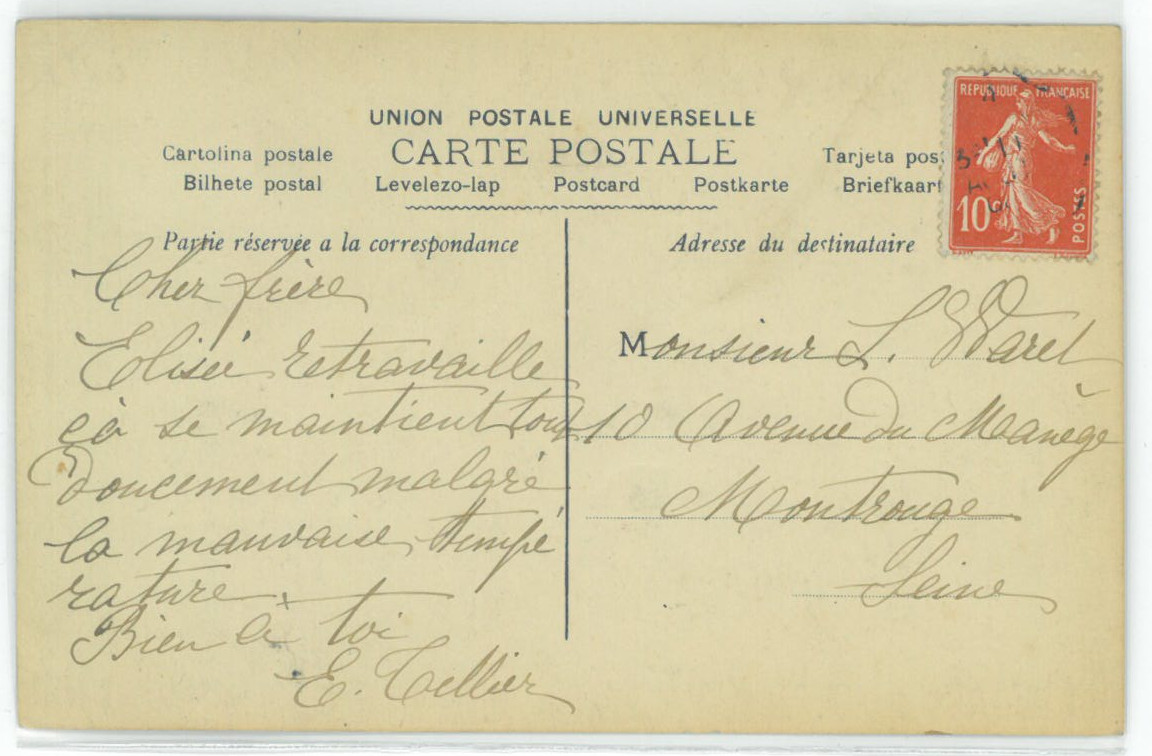 UNION POSTALE UNIVERSELLE
CARTE POSTALE
Cartolina postale
Tarjeta pos
Bilhete postal Levelezo-lap Postcard Postkarte Briefkaart
Partie réservée a la correspondance
Cher frère
Elisée retravaille
çà se maintient tout
doucement malgré
la mauvaise tempé
rature.
Bien à toi
E. Tellier
Adresse du destinataire
Monsieur L. Waret
10 Avenue du Manège
Montrouge
Seine
REPUBLIQUE FRANÇAISE
10
POSTES